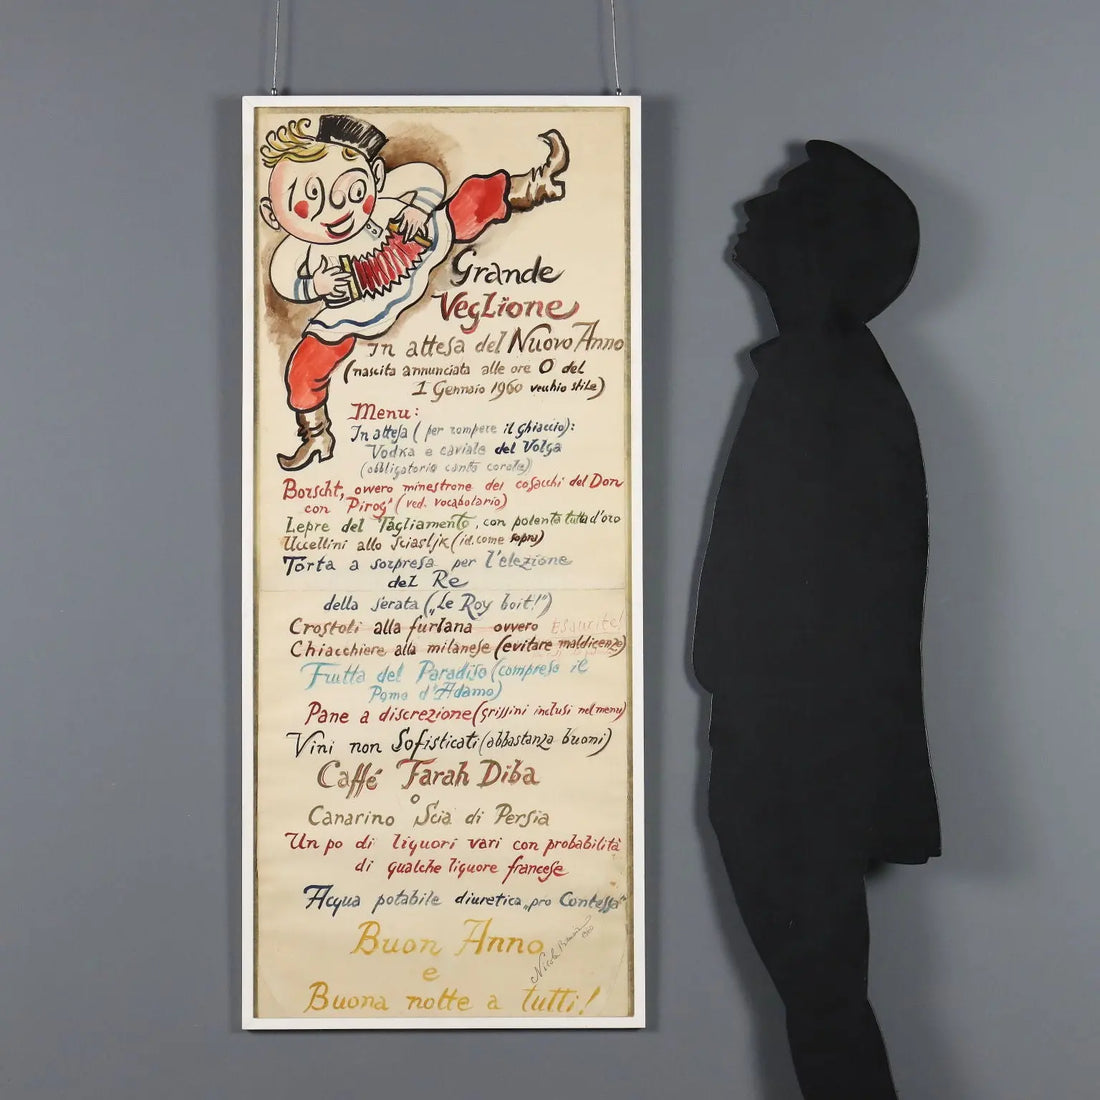 1960
Grande
Veglione
In attesa del Nuovo Anno
(nascita annunciata alle ore 0 del
1 Gennaio 1960 vecchio stile)
Menu:
In attesa (per rompere il ghiaccio):
Vodka e caviale del Volga
(obbligatorio canto corale)
Borscht, ovvero minestrone dei cosacchi del Don
con Pirog' (ved. vocabolario)
Lepre del Tagliamento, con polenta tutta d'oro
Uccellini allo Sciasljk (id. come sopra)
Torta a sorpresa per l'elezione
del Re
della serata („Le Roy boit!")
Crostoli alla furlana ovvero Esaurite!
Chiacchiere alla milanese (evitare maldicenze)
Frutta del Paradiso (compreso il
Pomo d'Adamo)
Pane a discrezione (grissini inclusi nel menu)
Vini non Sofisticati (abbastanza buoni)
Caffé Farah Diba
o
Canarino Scia di Persia
Un po di liquori vari con probabilità
di qualche liquore francese
Acqua potabile diuretica „pro Contessa"
Buon Anno
e
Buona notte a tutti!
Nicola Benois
1960